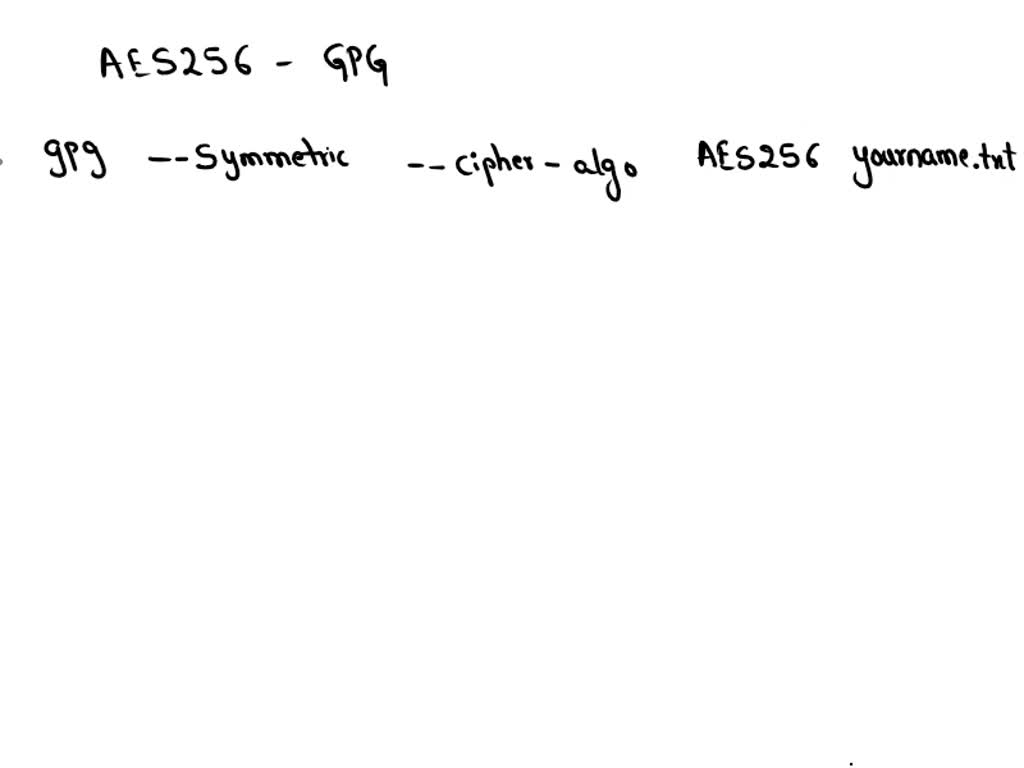 AES256 - GPG
gpg --Symmetric --cipher-algo AES256 yourname.txt